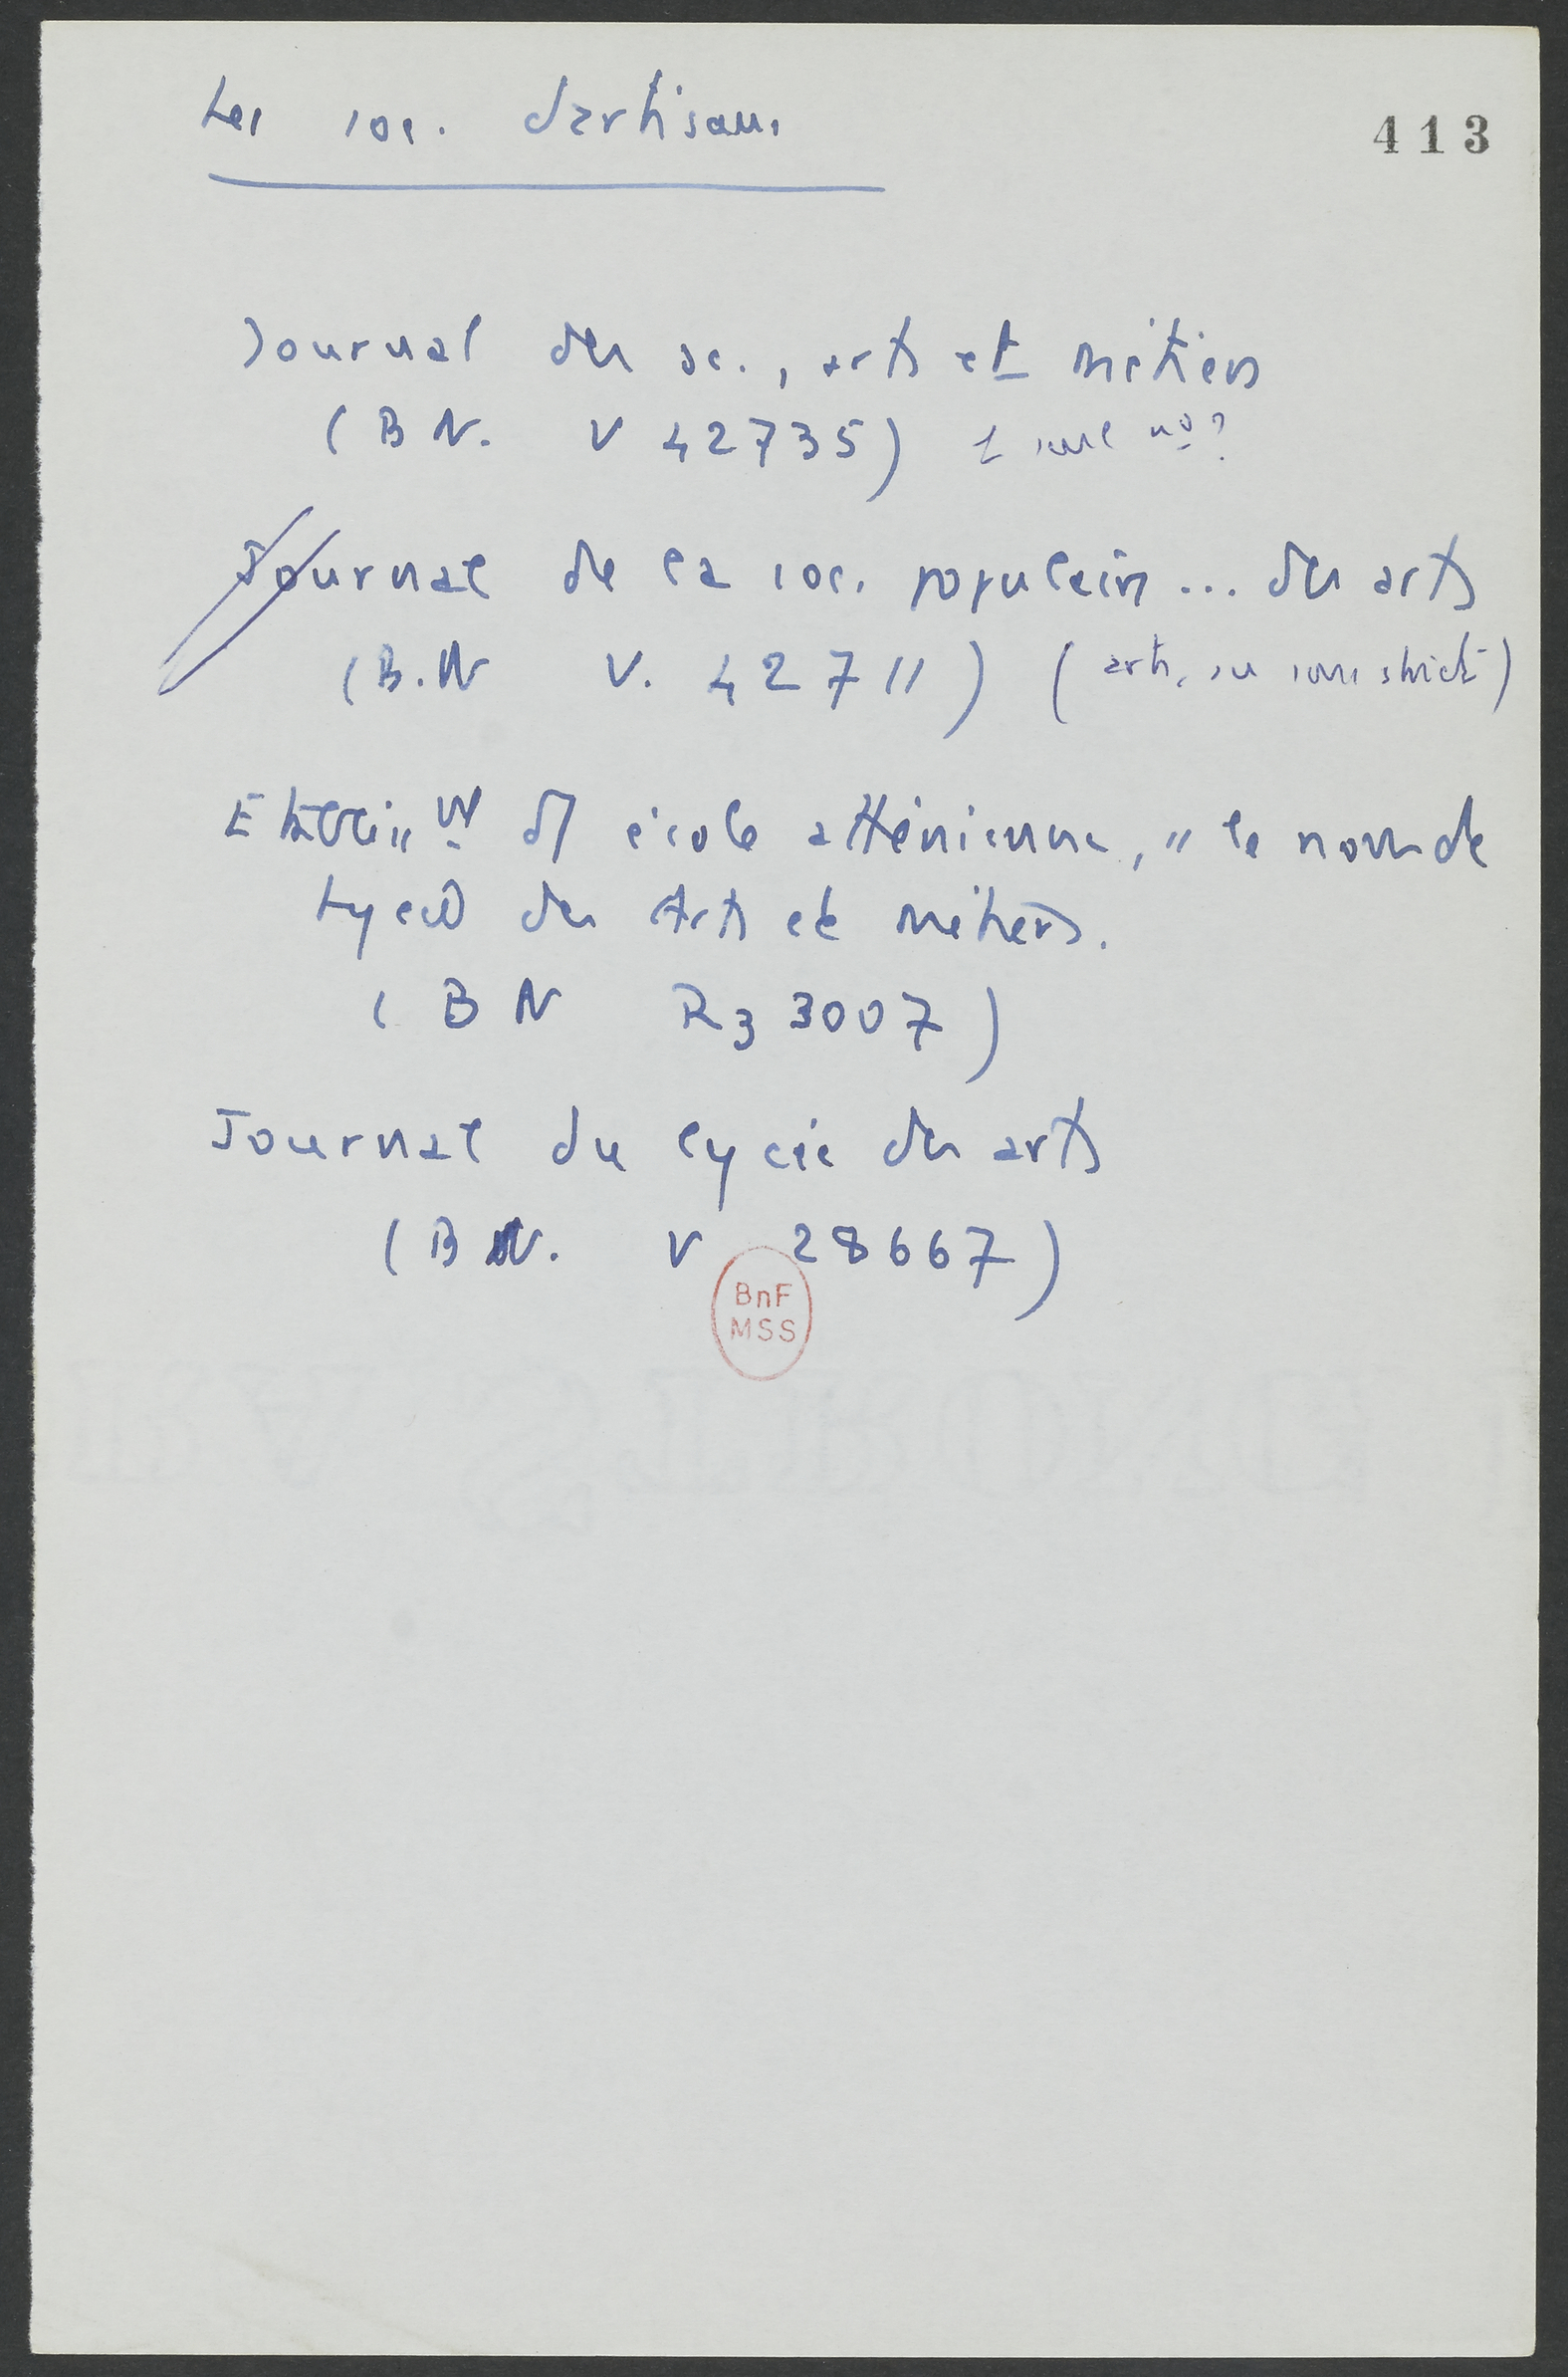 Les soc. d'artisans
413
Journal des sc., arts et métiers
(BN. V 42735) 1 seul no?
Journal de la soc. populaire... des arts
(B.N V. 42711) (arts, au sens strict)
école athénienne, ss le nom de
Lycée des Arts et métiers.
(BN Rz 3007)
Journal du lycée des arts
(BN. V 28667)
BnF
MSS